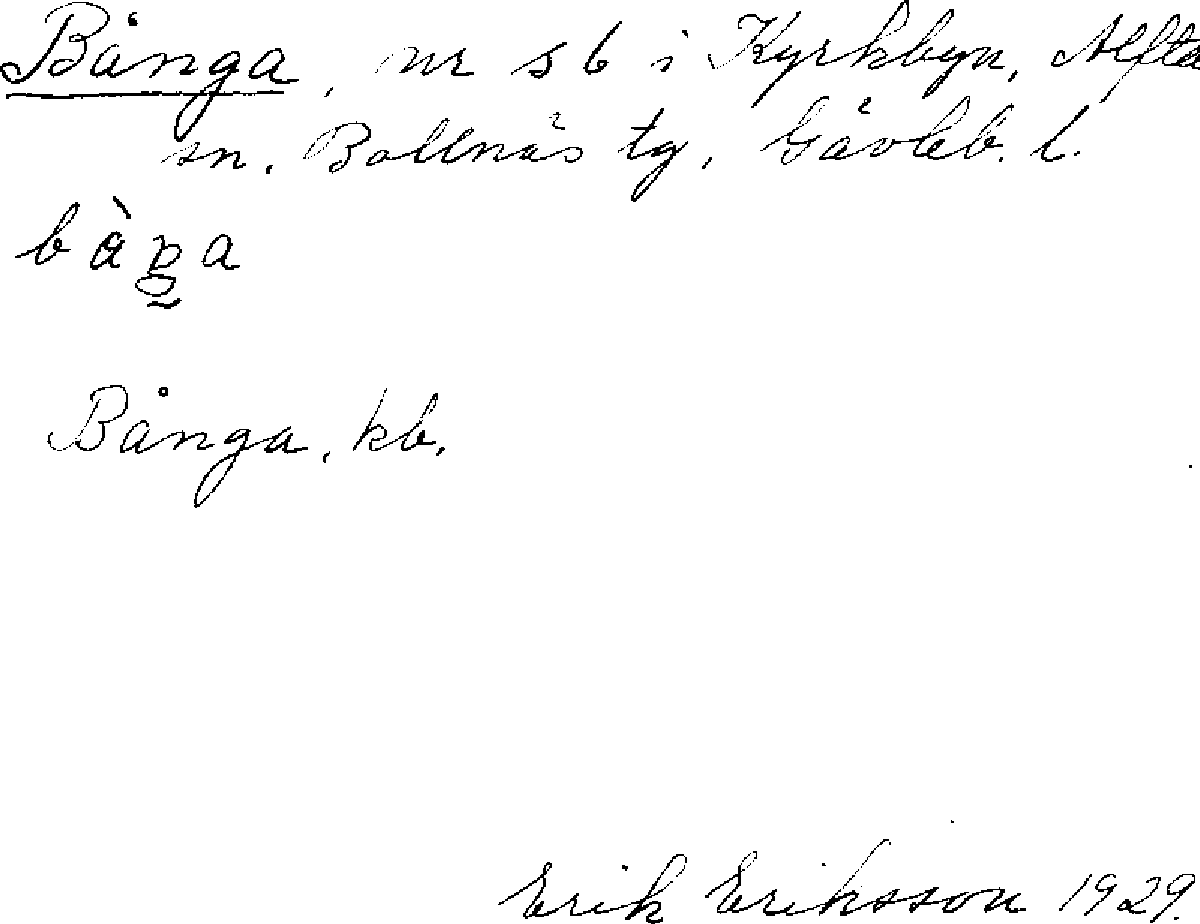 Bånga, nr 56 i Kyrkbyn, Alfta
sn. Bollnäs tg, Gävleb. l.
Bånga, kb.
Erik Eriksson 1929.